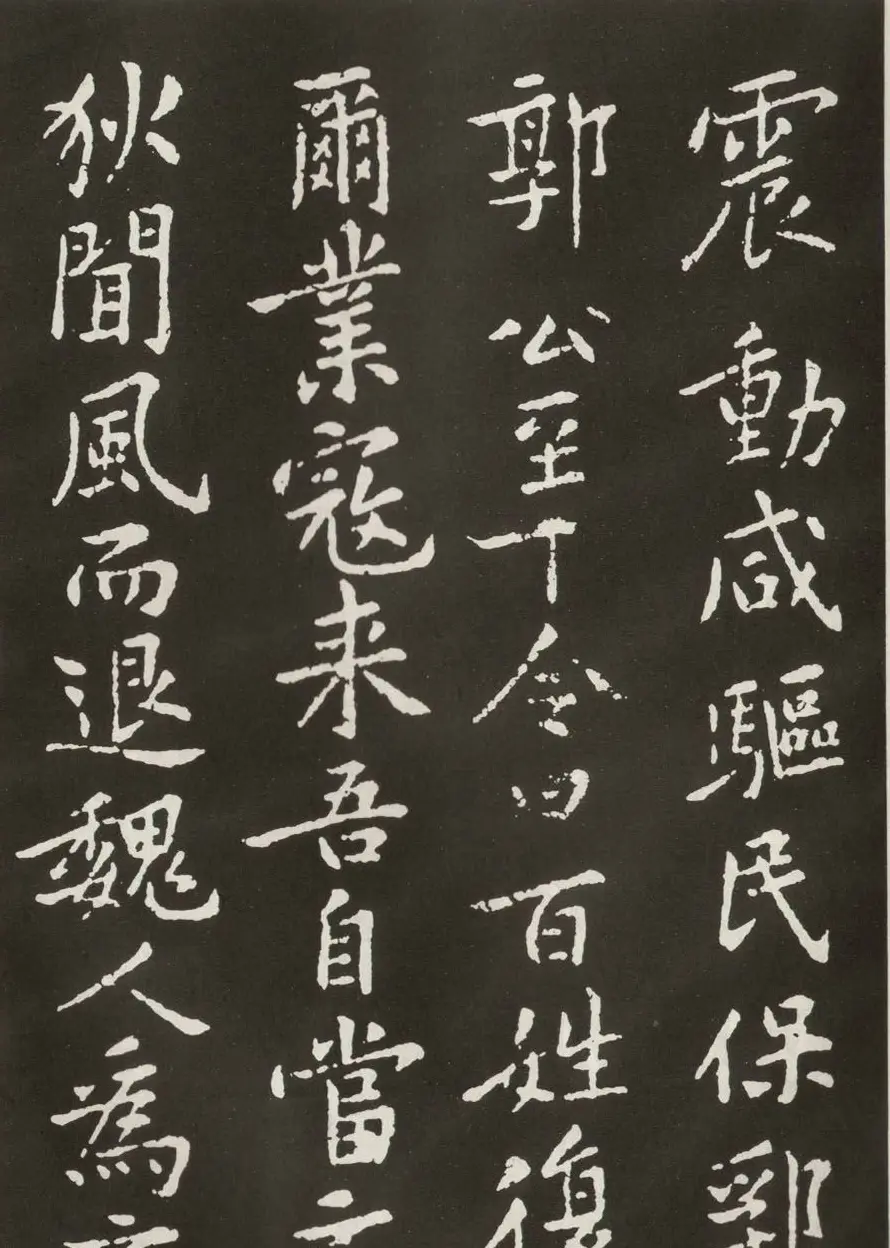 震動咸驅民保郭
郭公至下令曰百姓復
爾業寇来吾自當
狄聞風而退魏人為